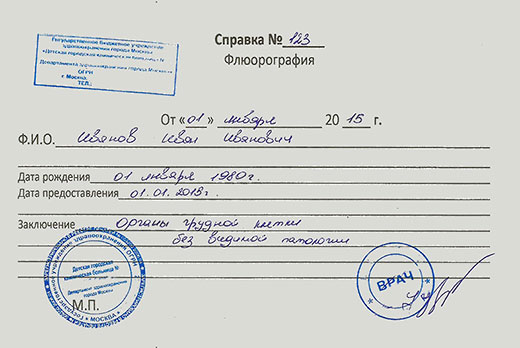 Государственное бюджетное учреждение
здравоохранения города Москвы
«Детская городская клиническая больница №
Департамента здравоохранения города Москвы»
ОГРН
г. Москва,
ТЕЛ.:
Справка № 123
Флюорография
От «01» января 2015 г.
Ф.И.О. Иванов Иван Иванович
Дата рождения 01 января 1980г.
Дата предоставления 01.01.2013г.
Заключение Органы грудной клетки
без видимой патологии
Детская городская
клиническая больница №
Департамент здравоохранения
города Москвы
* МОСКВА *
М.П.
ВРАЧ